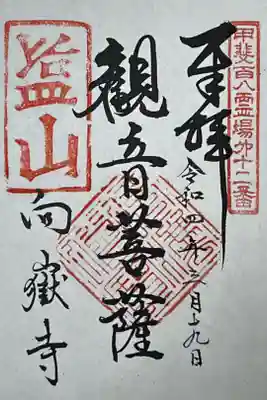 甲斐百八霊場第十二番
奉拝
令和四年三月十九日
觀音菩薩
塩山
向嶽寺